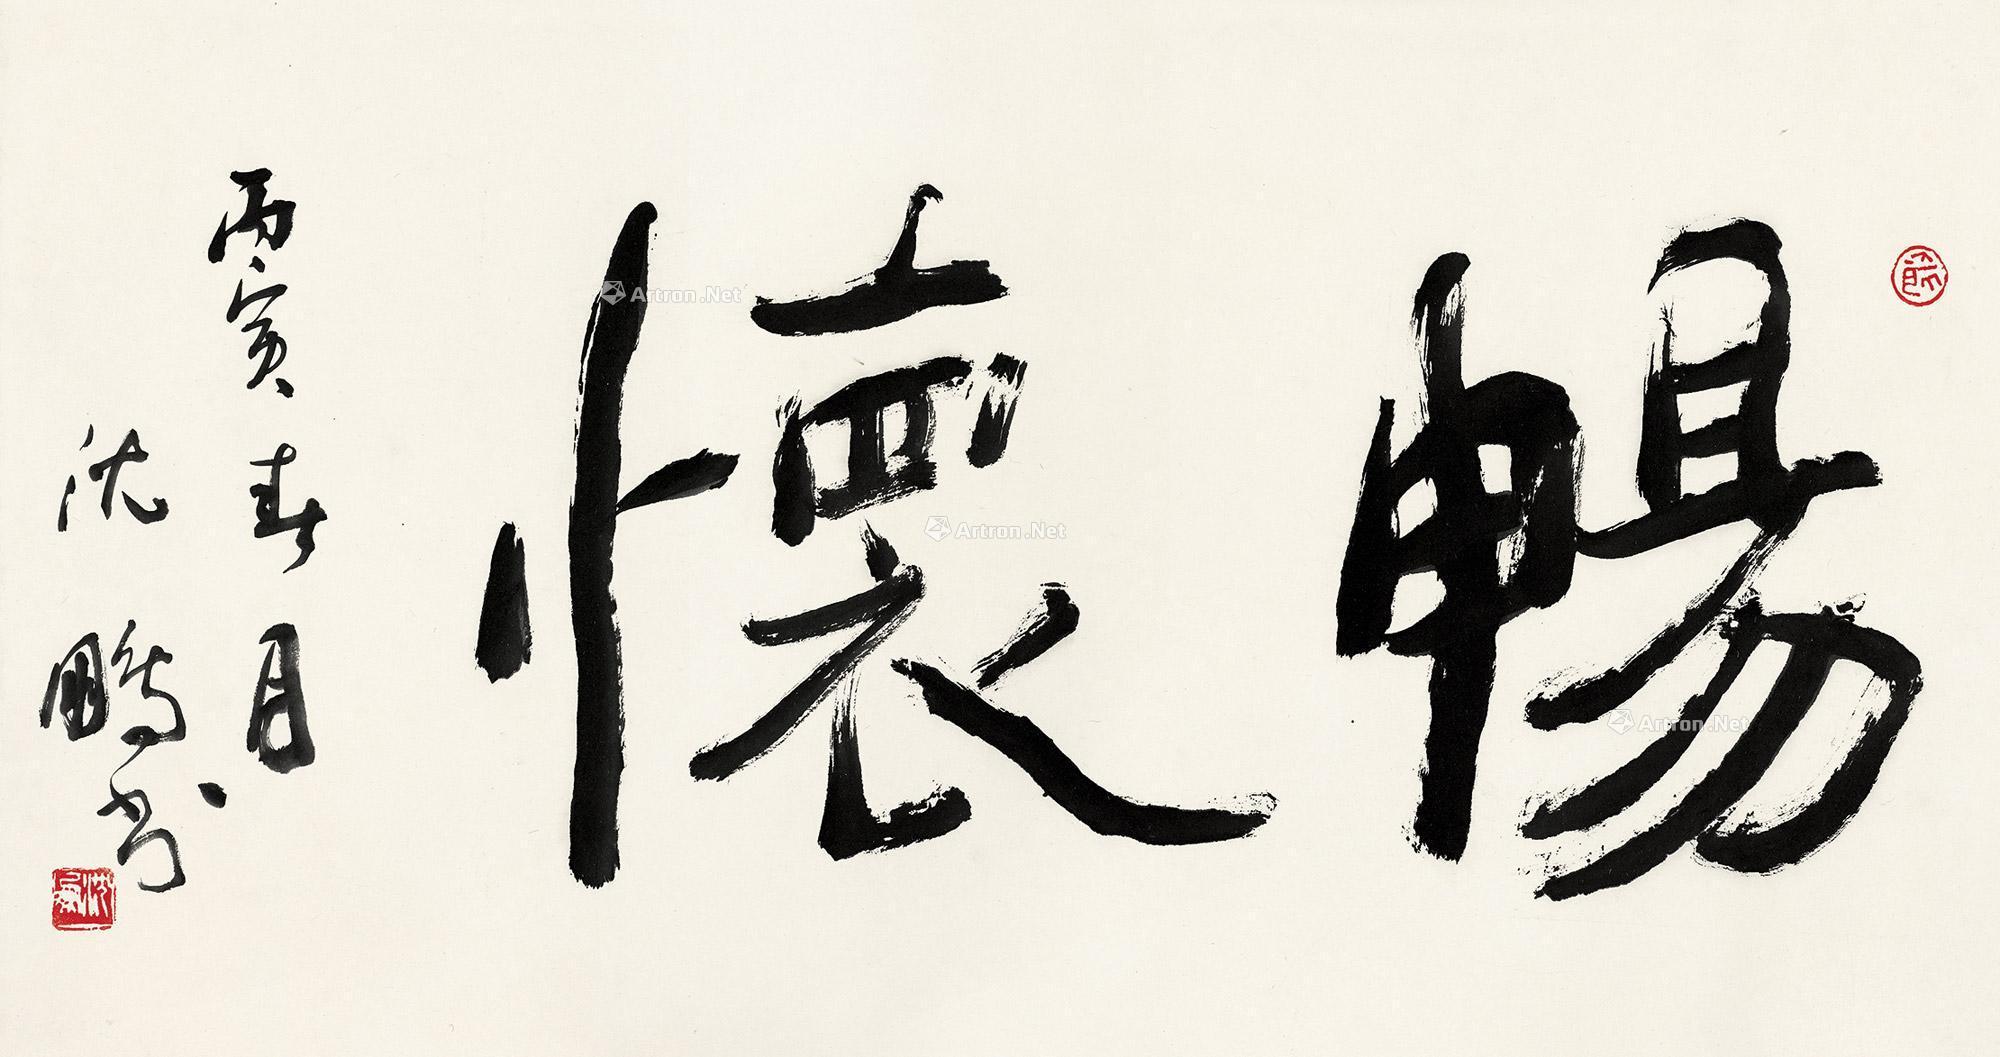 暢懷
丙寅春月
沈鵬書
Artron.Net
Artron.Net
Artron.Net